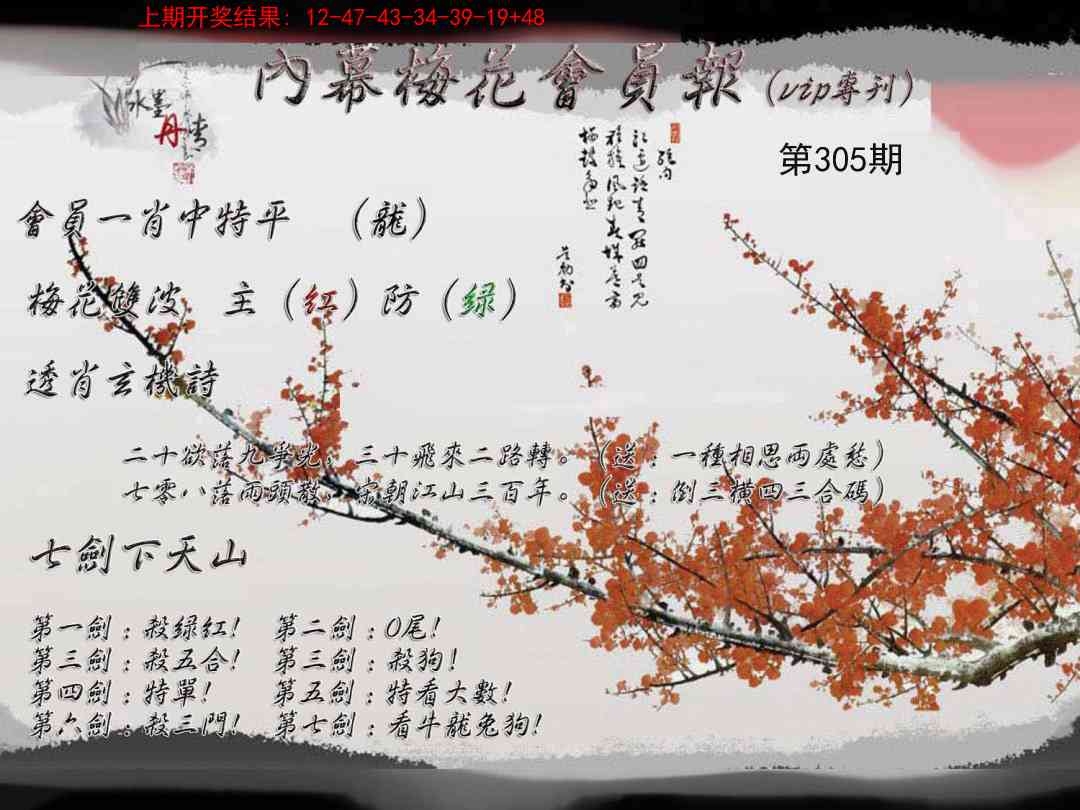 上期开奖结果: 12-47-43-34-39-19+48
內幕梅花會員報(vip專刊)
水墨丹青
第305期
會員一肖中特平 (龍)
梅花雙波 主(红)防(绿)
透肖玄機詩
二十欲落九爭光，三十飛來二路轉。(送：一種相思兩處愁)
七零八落兩頭散，宋朝江山三百年。(送：倒三橫四三合碼)
七劍下天山
第一劍：殺綠紅! 第二劍：0尾!
第三劍：殺五合! 第三劍：殺狗!
第四劍：特單! 第五劍：特看大數!
第六劍：殺三門! 第七劍：看牛龍兔狗!